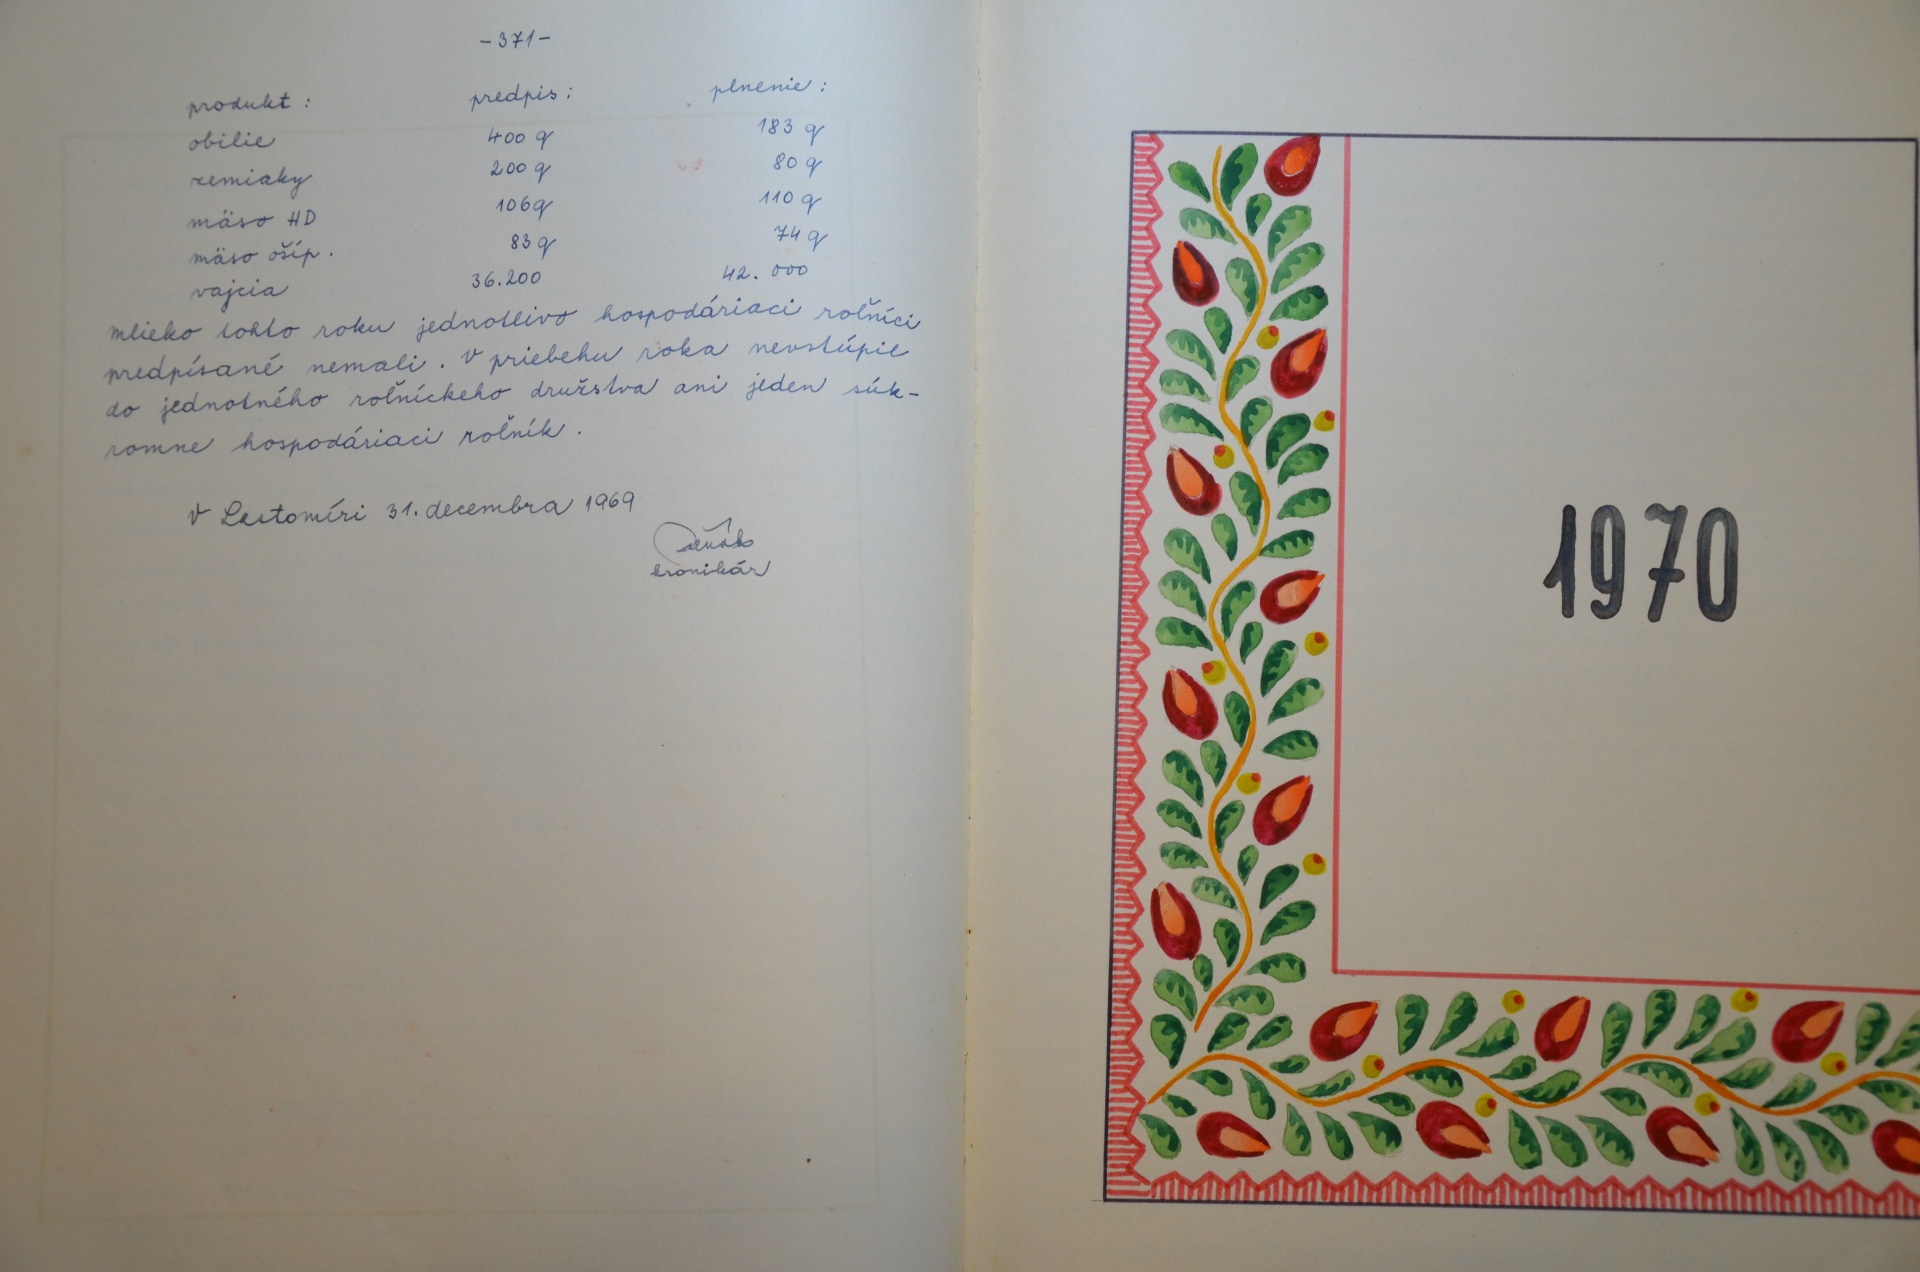 -371-
produkt : predpis : plnenie :
obilie 400 q 183 q
zemiaky 200 q 80 q
mäso HD 106 q 110 q
mäso ošíp. 83 q 74 q
vajcia 36.200 42.000
mlieko tohto roku jednotlivo hospodáriaci roľníci
predpísané nemali. V priebehu roka nevstúpil
do jednotného roľníckeho družstva ani jeden súk-
romne hospodáriaci roľník.
V Lastomíri 31. decembra 1969
kronikár
1970